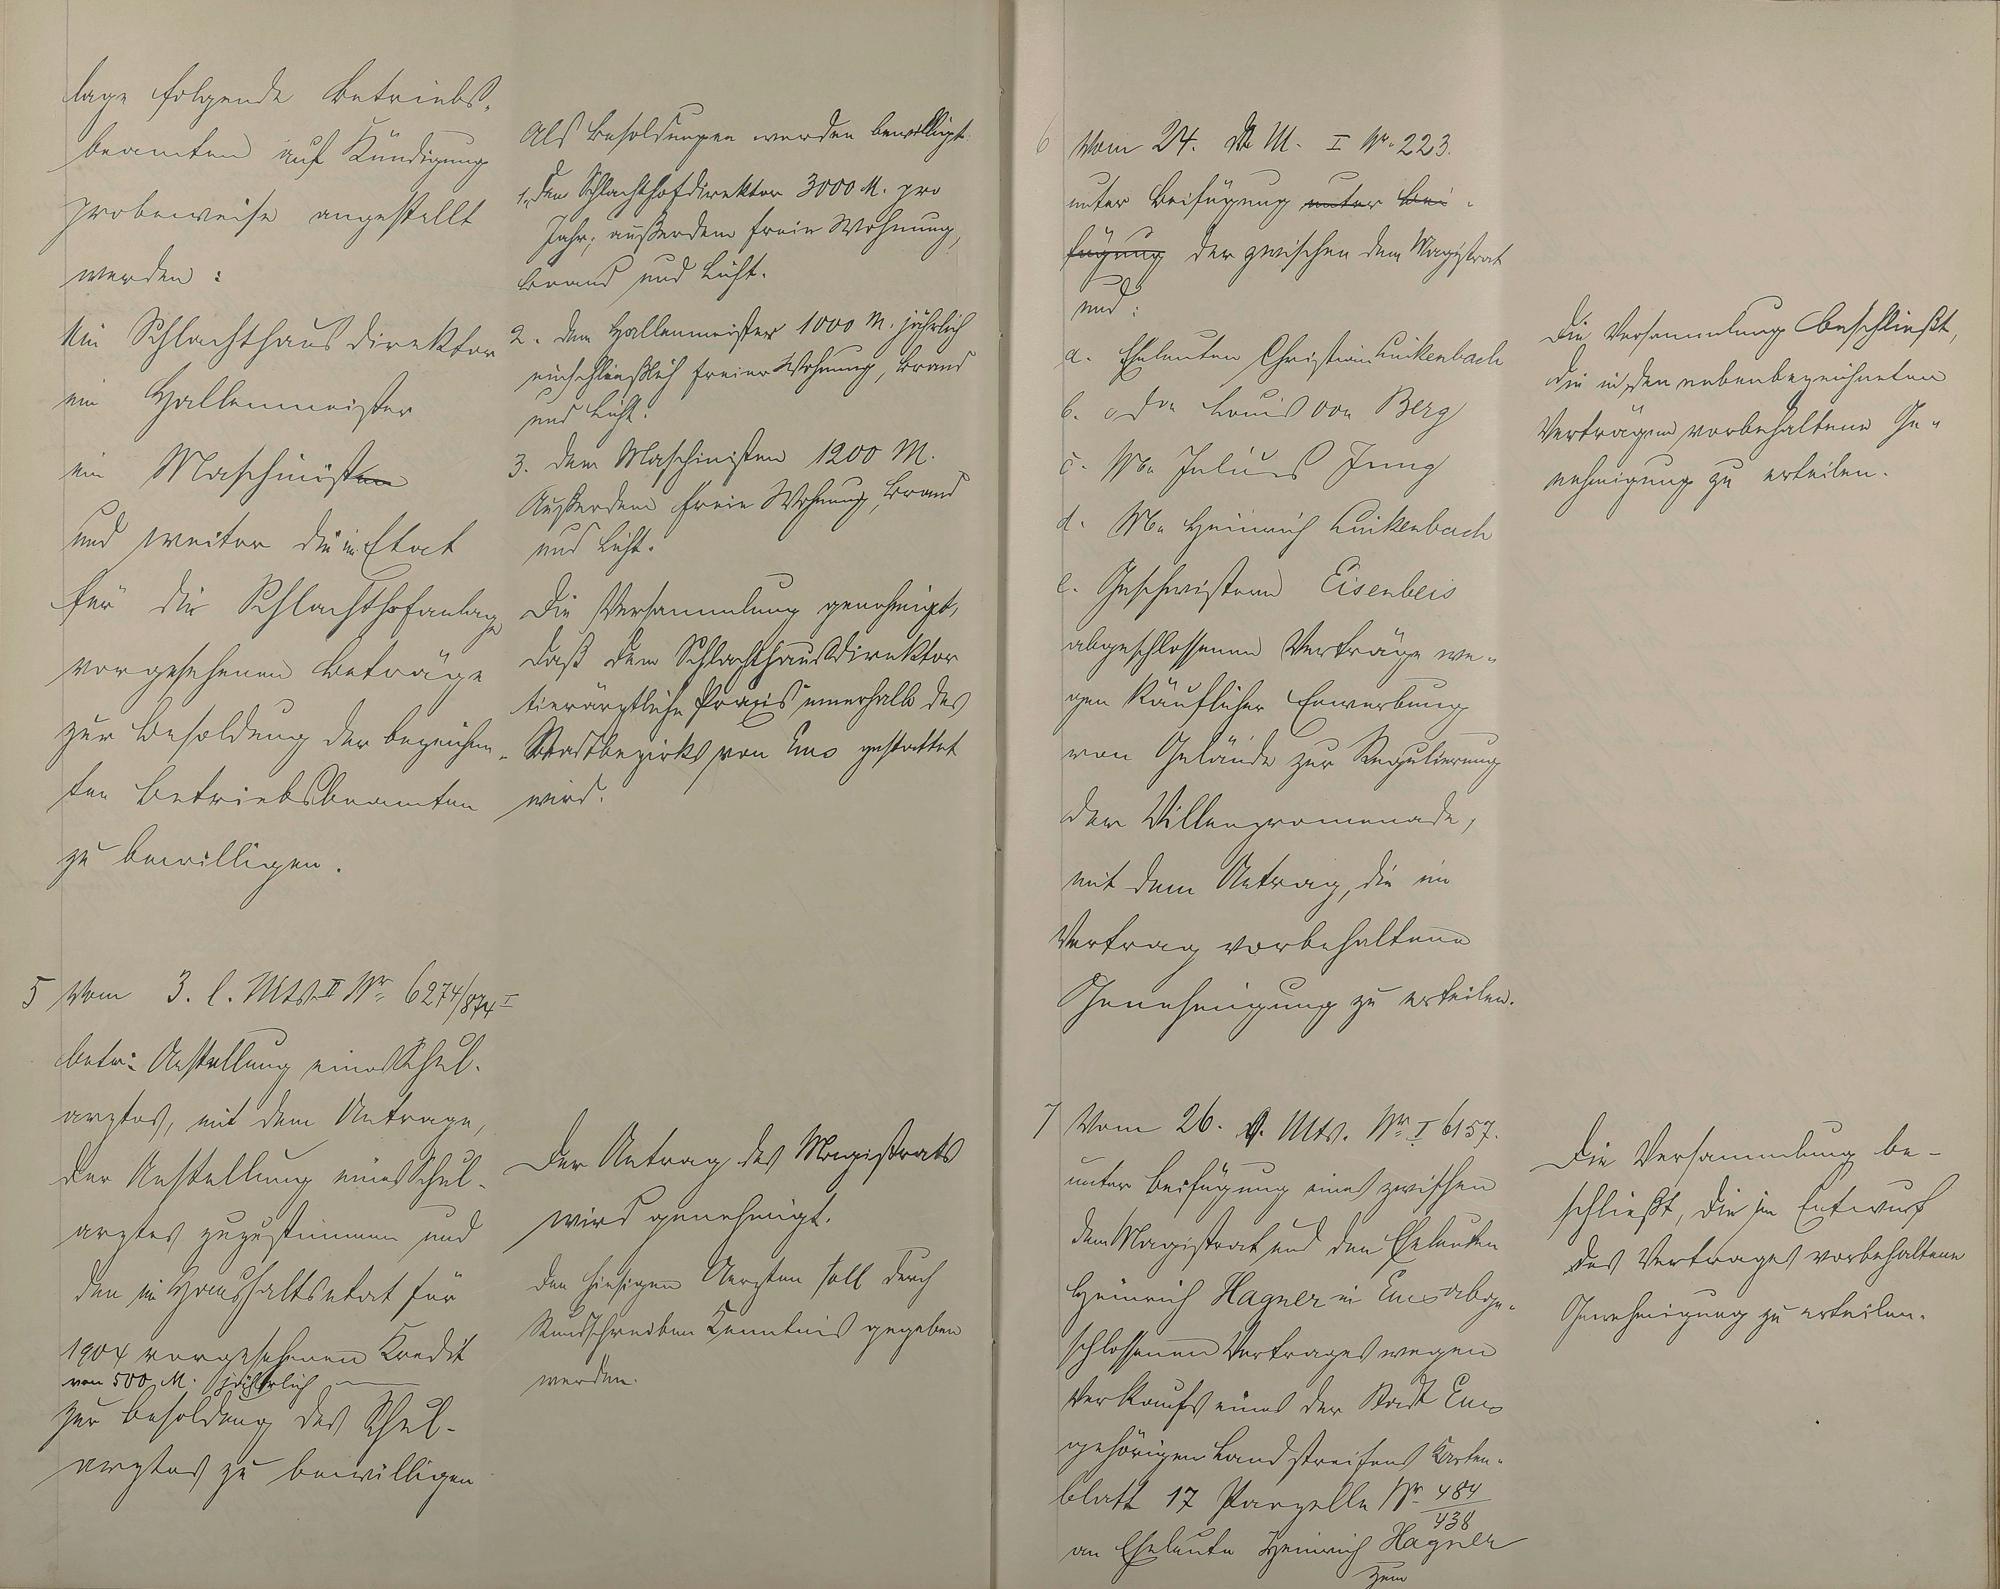 lage folgende Betriebs-
beamten auf Kündigung
probeweise angestellt
werden:
ein Schlachthausdirektor
ein Hallenmeister
ein Maschinisten
und weiter die im Etat
für die Schlachthofanlage
vorgesehenen Beträge
zur Besoldung der bezeichne-
ten Betriebsbeamten
zu bewilligen.
5 Vom 3. l. Mts. II Nr. 6274/874 I
betr: Anstellung eines Schul-
arztes, mit dem Antrage,
der Anstellung eines Schul-
arztes zuzustimmen und
den im Haushaltsetat für
1904 vorgesehenen Kredit
von 500 M. jährlich
zur Besoldung des Schul-
arztes zu bewilligen
Als Besoldungen werden bewilligt
1. dem Schlachthofdirektor 3000 M. pro
Jahr; außerdem freie Wohnung,
Brand und Licht.
2. dem Hallenmeister 1000 M. jährlich
einschließlich freier Wohnung, Brand
und Licht.
3. dem Maschinisten 1200 M.
Außerdem freie Wohnung, Brand
und Licht.
Die Versammlung genehmigt,
daß dem Schlachthausdirektor
tierärztliche Praxis innerhalb des
Stadtbezirks von Ems gestattet
wird.
Der Antrag des Magistrats
wird genehmigt.
Den hiesigen Aerzten soll durch
Rundschreiben Kenntnis gegeben
werden.
6 Vom 24. M. I Nr. 223.
unter Beifügung unter Bei-
fügung der zwischen dem Magistrat
und:
a. Eheleuten Christian Linkenbach
b. Louis von Berg
c. Julius Jung
d. Heinrich Linkenbach
e. Geschwistern Eisenbeis
abgeschlossenen Verträge we-
gen käuflicher Erwerbung
von Gelände zur Regulierung
der Villenpromenade,
mit dem Antrag, die im
Vertrag vorbehaltene
Genehmigung zu erteilen.
7 Vom 26. v. Mts. Nr. I 6157.
unter Beifügung eines zwischen
dem Magistrat und den Eheleuten
Heinrich Hagner in Ems abge-
schlossenen Vertrages wegen
Verkaufs eines der Stadt Ems
gehörigen Landstreifens Karten-
blatt 17 Parzelle Nr. 484/438
an Eheleute Heinrich Hagner
zum
Die Versammlung beschließt,
die in den nebenbezeichneten
Verträgen vorbehaltene Ge-
nehmigung zu erteilen.
Die Versammlung be-
schließt, die im Entwurf
des Vertrages vorbehaltene
Genehmigung zu erteilen.